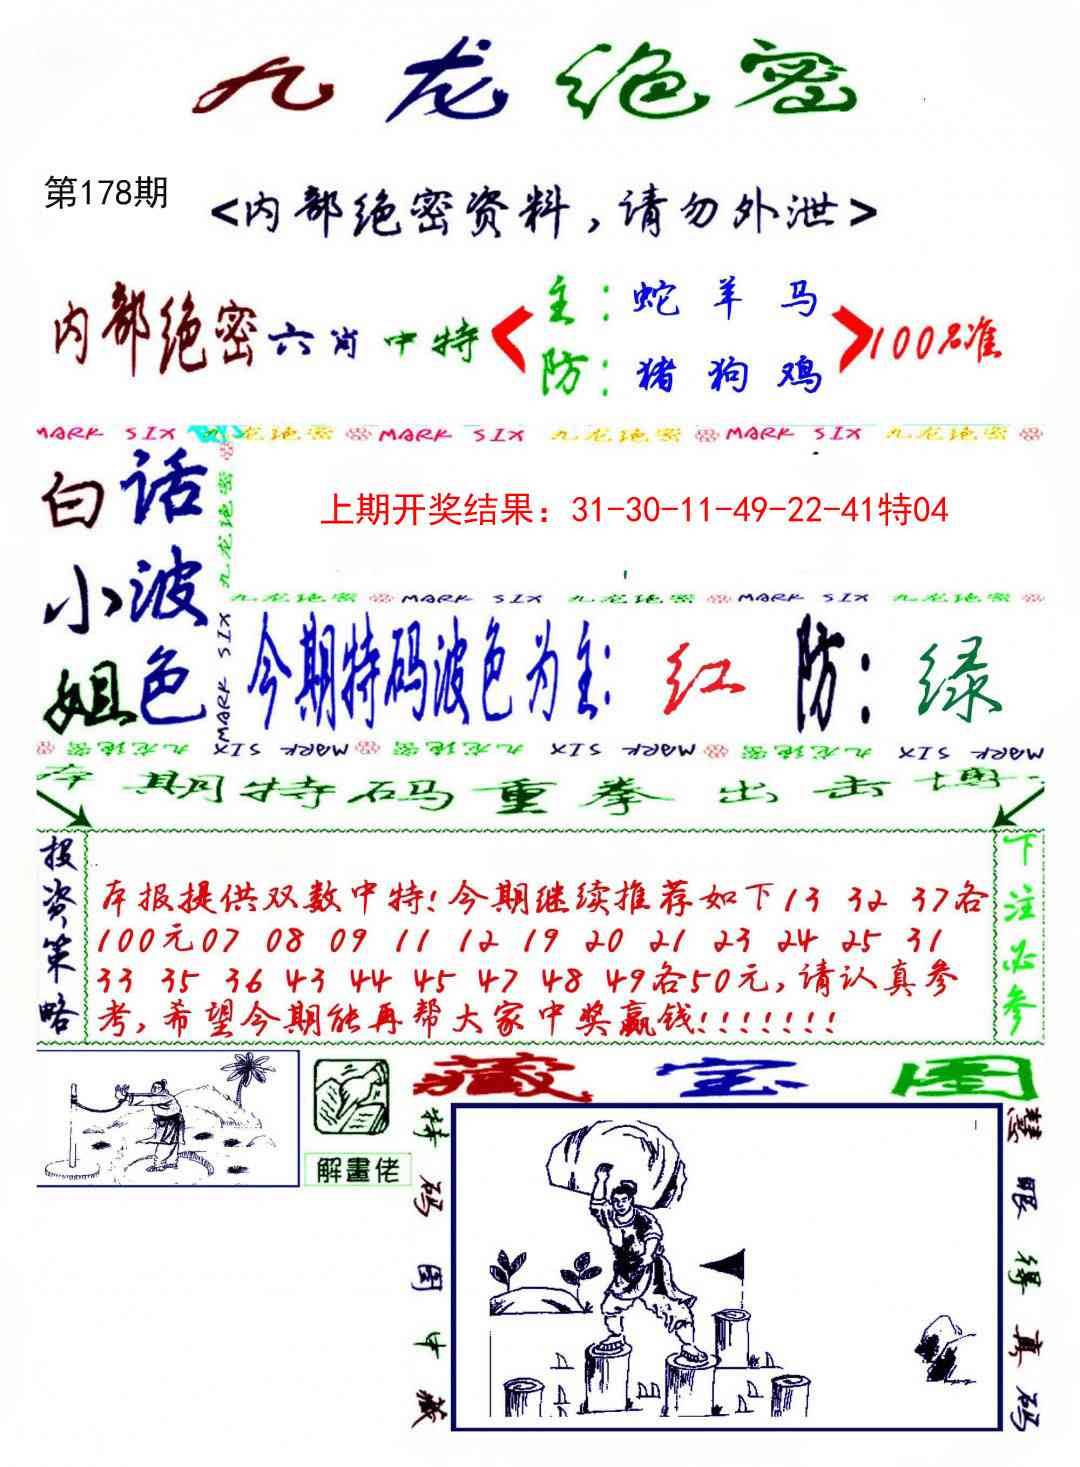 九龙绝密
第178期
<内部绝密资料,请勿外泄>
内部绝密六肖中特
主:蛇 羊 马
防:猪 狗 鸡
100%准
MARK SIX 九龙绝密 MARK SIX 九龙绝密 MARK SIX 九龙绝密
白话
小波
姐色
九龙绝密
MARK SIX
上期开奖结果：31-30-11-49-22-41特04
九龙绝密 MARK SIX 九龙绝密 MARK SIX 九龙绝密
今期特码波色为主:红 防:绿
九龙绝密 MARK SIX 九龙绝密 MARK SIX 九龙绝密 MARK SIX
本期特码重拳出击博
投资策略
本报提供双数中特!今期继续推荐如下13 32 37各
100元07 08 09 11 12 19 20 21 23 24 25 31
33 35 36 43 44 45 47 48 49各50元,请认真参
考,希望今期能再帮大家中奖赢钱!!!!!!!
下注必参
解畫佬
藏宝图
特码图中藏
慧眼得真码